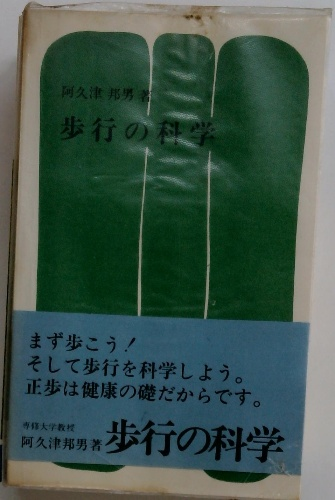 阿久津 邦男 著
歩行の科学
まず歩こう!
そして歩行を科学しよう。
正歩は健康の礎だからです。
専修大学教授
阿久津邦男著 歩行の科学